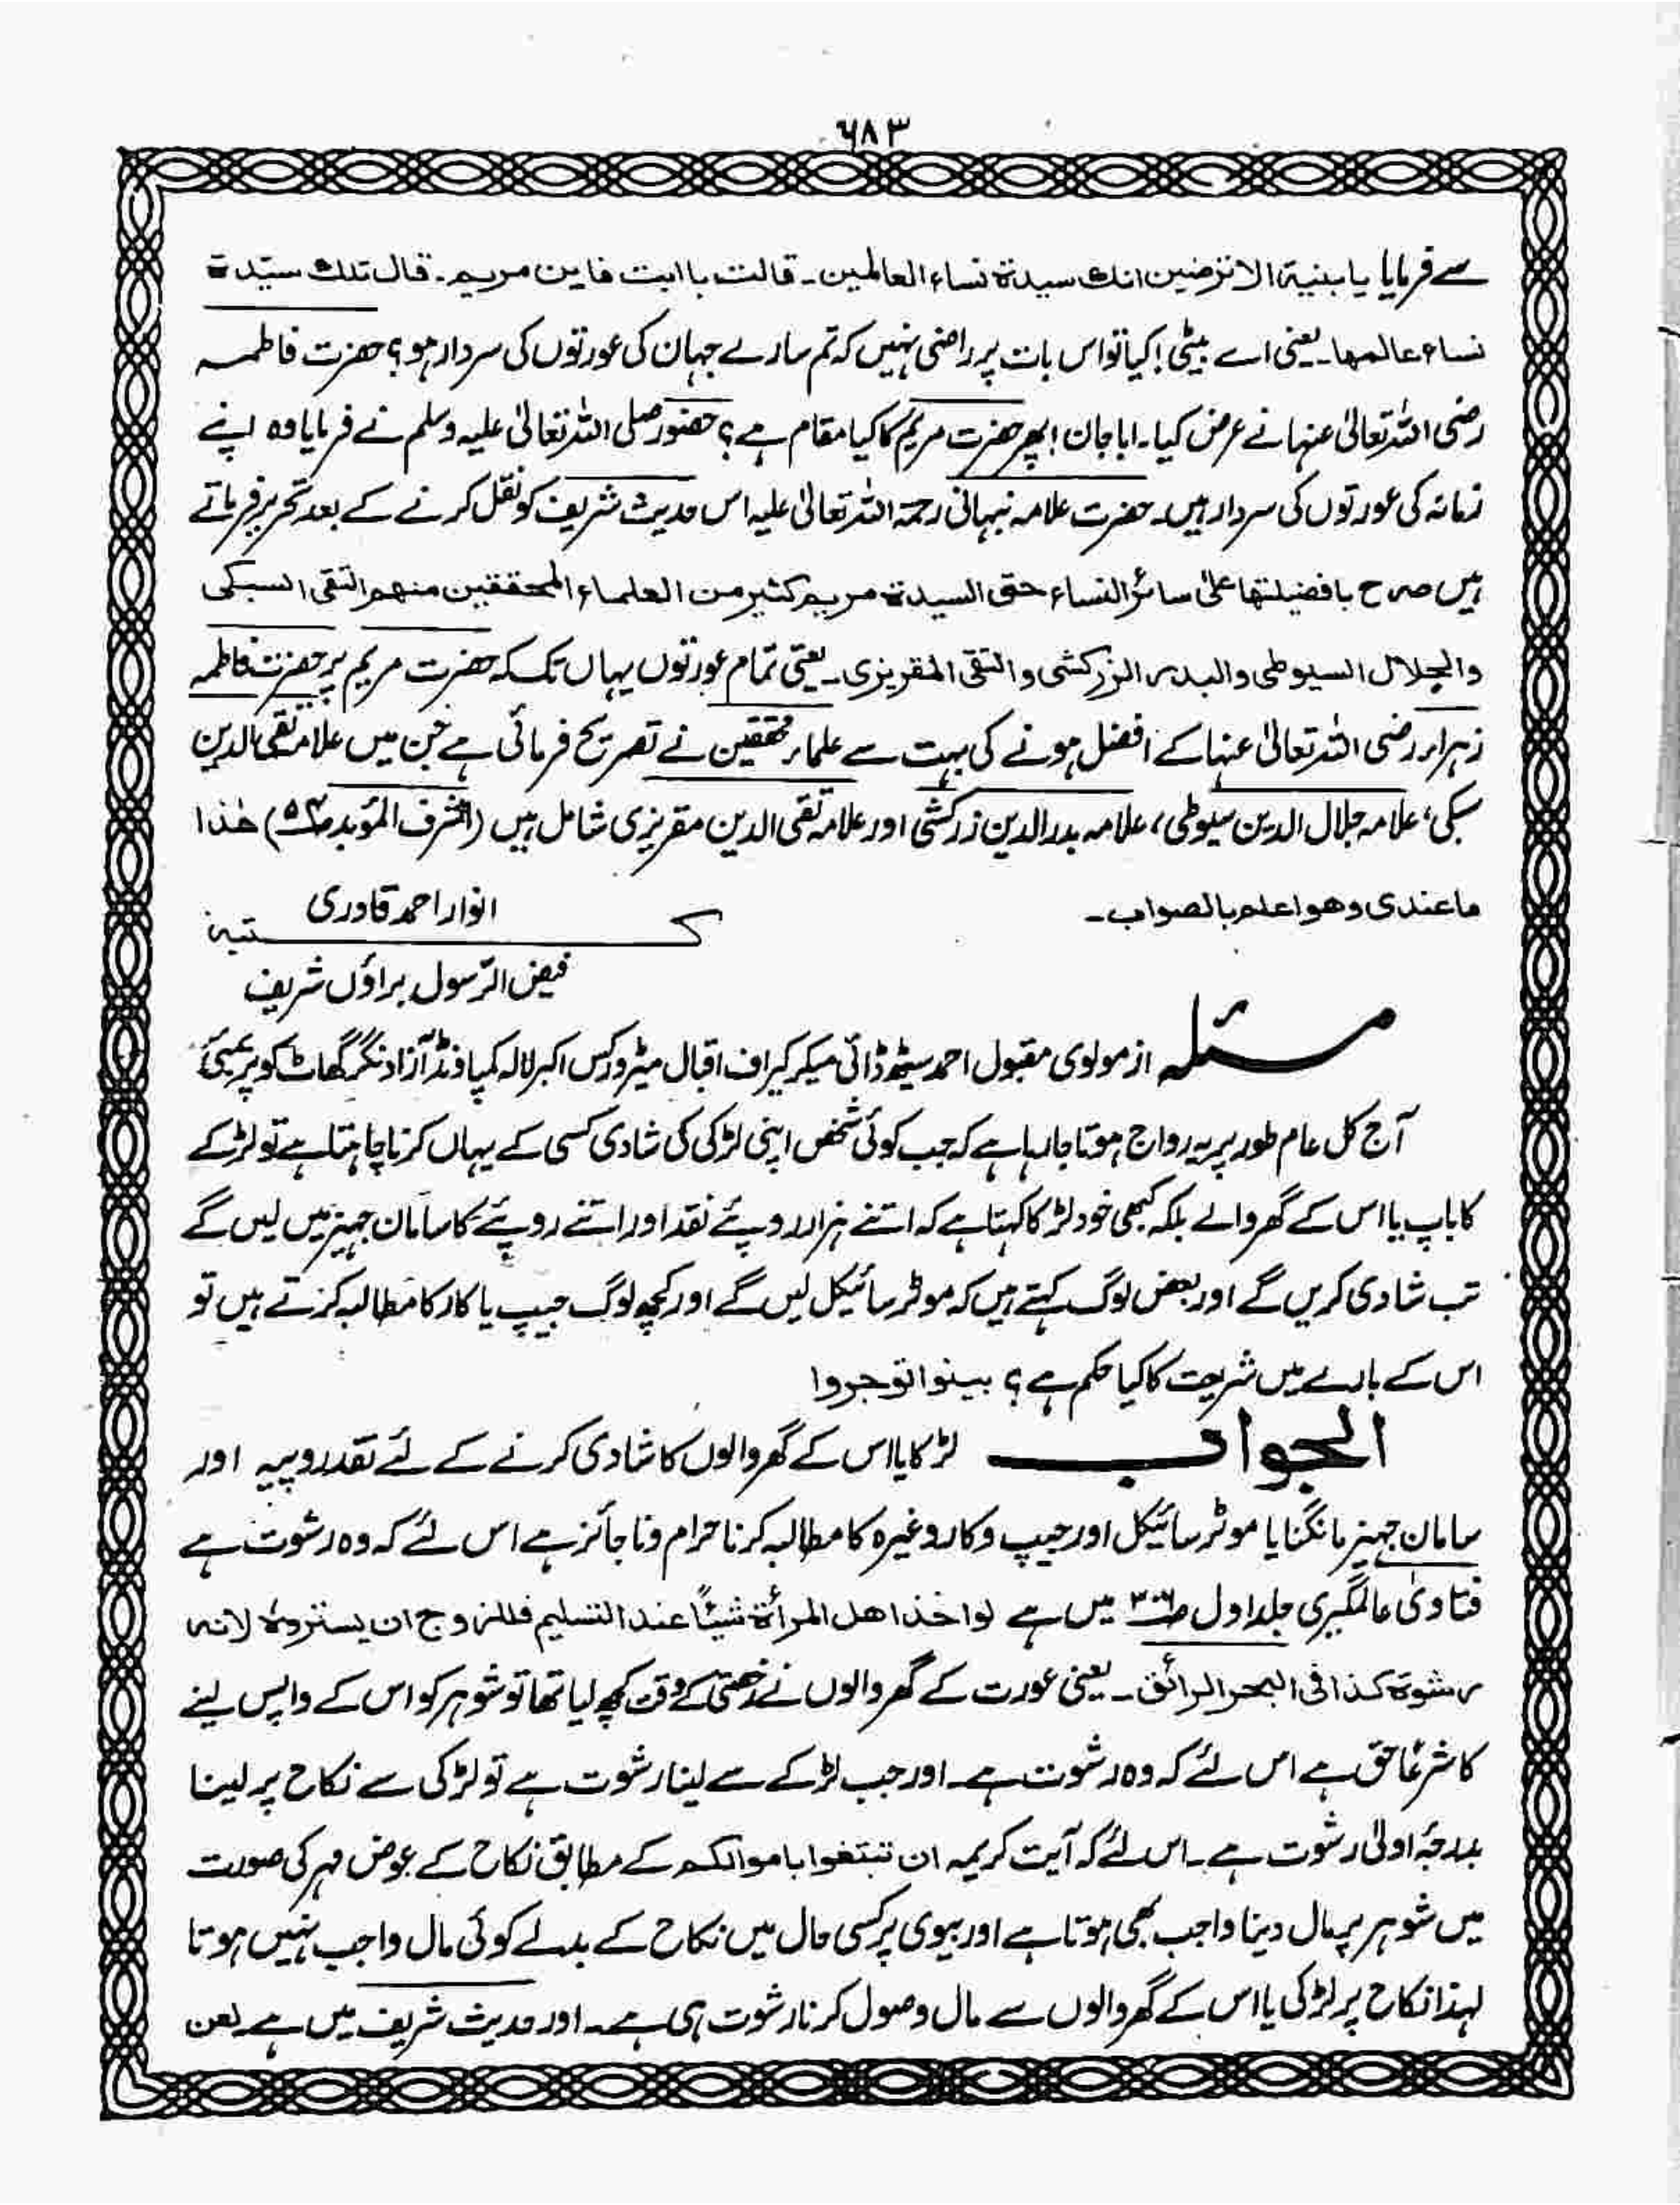 ٦٨٣
سے فرمایا یا بنیة الا ترضین انك سیدة نساء العالمین۔ قالت یا ابت فاین مریم۔ قال تلك سیّدة
نساء عالمها۔ یعنی اے بیٹی! کیا تو اس بات پر راضی نہیں کہ تم سارے جہان کی عورتوں کی سردار ہو؟ حضرت فاطمہ
رضی اللہ تعالیٰ عنہا نے عرض کیا۔ ابا جان! پھر حضرت مریم کا کیا مقام ہے؟ حضور صلی اللہ تعالیٰ علیہ وسلم نے فرمایا وہ اپنے
زمانہ کی عورتوں کی سردار ہیں۔ حضرت علامہ نبہانی رحمۃ اللہ تعالیٰ علیہ اس حدیث شریف کو نقل کرنے کے بعد تحریر فرماتے
ہیں صرح بافضلیتها علیٰ سائر النساء حتی السیدة مریم کثیر من العلماء المحققین منهم التقی السبکی
والجلال السیوطی والبدر الزرکشی والتقی المقریزی۔ یعنی تمام عورتوں یہاں تک کہ حضرت مریم پر حضرت فاطمہ
زہراء رضی اللہ تعالیٰ عنہا کے افضل ہونے کی بہت سے علماء محققین نے تصریح فرمائی ہے جن میں علامہ تقی الدین
سبکی، علامہ جلال الدین سیوطی، علامہ بدر الدین زرکشی اور علامہ تقی الدین مقریزی شامل ہیں (الشرف المؤبد ص۵۴) هٰذا
ما عندی وهو اعلم بالصواب۔
کتبہ انوار احمد قادری
فیض الرّسول براؤں شریف
مسئلہ از مولوی مقبول احمد سیٹھ ڈائی میکر کیراف اقبال میٹر ورکس اکبر لالہ کمپاؤنڈ آزاد نگر گھاٹ کوپر بمبئی
آج کل عام طور پر یہ رواج ہوتا جا رہا ہے کہ جب کوئی شخص اپنی لڑکی کی شادی کسی کے یہاں کرنا چاہتا ہے تو لڑکے
کا باپ یا اس کے گھر والے بلکہ کبھی خود لڑکا کہتا ہے کہ اتنے ہزار روپئے نقد اور اتنے روپئے کا سامان جہیز میں لیں گے
تب شادی کریں گے اور بعض لوگ کہتے ہیں کہ موٹر سائیکل لیں گے اور کچھ لوگ جیپ یا کار کا مطالبہ کرتے ہیں تو
اس کے بارے میں شریعت کا کیا حکم ہے؟ بینوا توجروا
الجواب لڑکا یا اس کے گھر والوں کا شادی کرنے کے لئے نقد روپیہ اور
سامان جہیز مانگنا یا موٹر سائیکل اور جیپ و کار وغیرہ کا مطالبہ کرنا حرام و ناجائز ہے اس لئے کہ وہ رشوت ہے
فتاویٰ عالمگیری جلد اول ص۳۰۶ میں ہے لو اخذ اهل المرأة شیئًا عند التسلیم فللزوج ان یستردہ لانہ
رشوة کذا فی البحر الرائق۔ یعنی عورت کے گھر والوں نے رخصتی کے وقت کچھ لیا تھا تو شوہر کو اس کے واپس لینے
کا شرعًا حق ہے اس لئے کہ وہ رشوت ہے۔ اور جب لڑکے سے لینا رشوت ہے تو لڑکی سے نکاح پر لینا
بدرجۂ اولیٰ رشوت ہے۔ اس لئے کہ آیت کریمہ ان تبتغوا باموالکم کے مطابق نکاح کے عوض مہر کی صورت
میں شوہر پر مال دینا واجب بھی ہوتا ہے اور بیوی پر کسی حال میں نکاح کے بدلے کوئی مال واجب نہیں ہوتا
لہذا نکاح پر لڑکی یا اس کے گھر والوں سے مال وصول کرنا رشوت ہی ہے۔ اور حدیث شریف میں ہے لعن